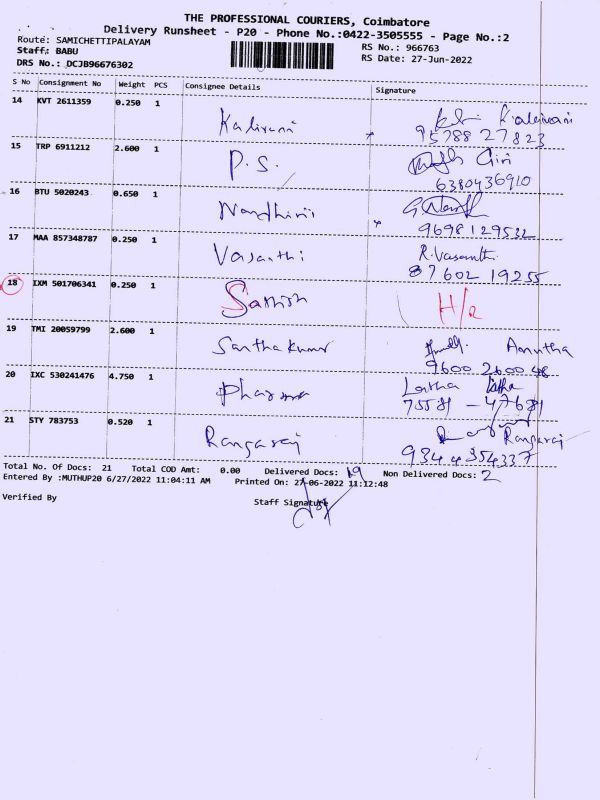 THE PROFESSIONAL COURIERS, Coimbatore
Delivery Runsheet - P20 - Phone No.:0422-3505555 - Page No.:2
Route: SAMICHETTIPALAYAM
RS No.: 966763
Staff: BABU
RS Date: 27-Jun-2022
DRS No.: DCJB96676302
S No Consignment No Weight PCS Consignee Details Signature
14 KVT 2611359 0.250 1 Kalivani
95788 27823
15 TRP 6911212 2.600 1 P.S. Giri
6380436910
16 BTU 5020243 0.650 1 Nandhini
9698129532
17 MAA 857348787 0.250 1 Vasanthi R.Vasanthi
87602 19255
18 IXM 501706341 0.250 1 Sathish H/R
19 TMI 20059799 2.600 1 Santhakumar Amutha
9600 260048
20 IXC 530241476 4.750 1 Pharma Latha Latha
75581 - 47681
21 STY 783753 0.520 1 Rangaraj Rangaraj
9344354337
Total No. Of Docs: 21 Total COD Amt: 0.00 Delivered Docs: 19 Non Delivered Docs: 2
Entered By :MUTHUP20 6/27/2022 11:04:11 AM Printed On: 27-06-2022 11:12:48
Verified By Staff Signature